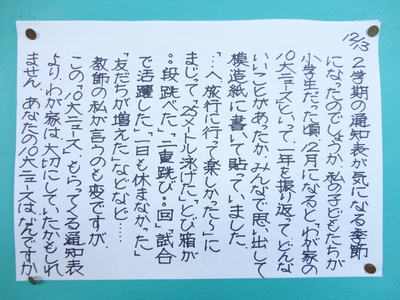 12/13
2学期の通知表が気になる季節
になったのでしょうか。私の子どもたちが
小学生だった頃、12月になると、「わが家の
10大ニュース」といって一年を振り返って、どんな
いいことがあったか、みんなで思い出して
模造紙に書いて貼っていました。
「…へ旅行に行って楽しかった〜」に
まじって、「〇メートル泳げた」「とび箱が
〇〇段跳べた」「二重跳び〇〇回」「試合
で活躍した」「一日も休まなかった」
「友だちが増えた」などなど……
教師の私が言うのも変ですが、
この「10大ニュース」、もらってくる通知表
より、わが家は大切にしていたかもしれ
ません。あなたの10大ニュースはなんですか